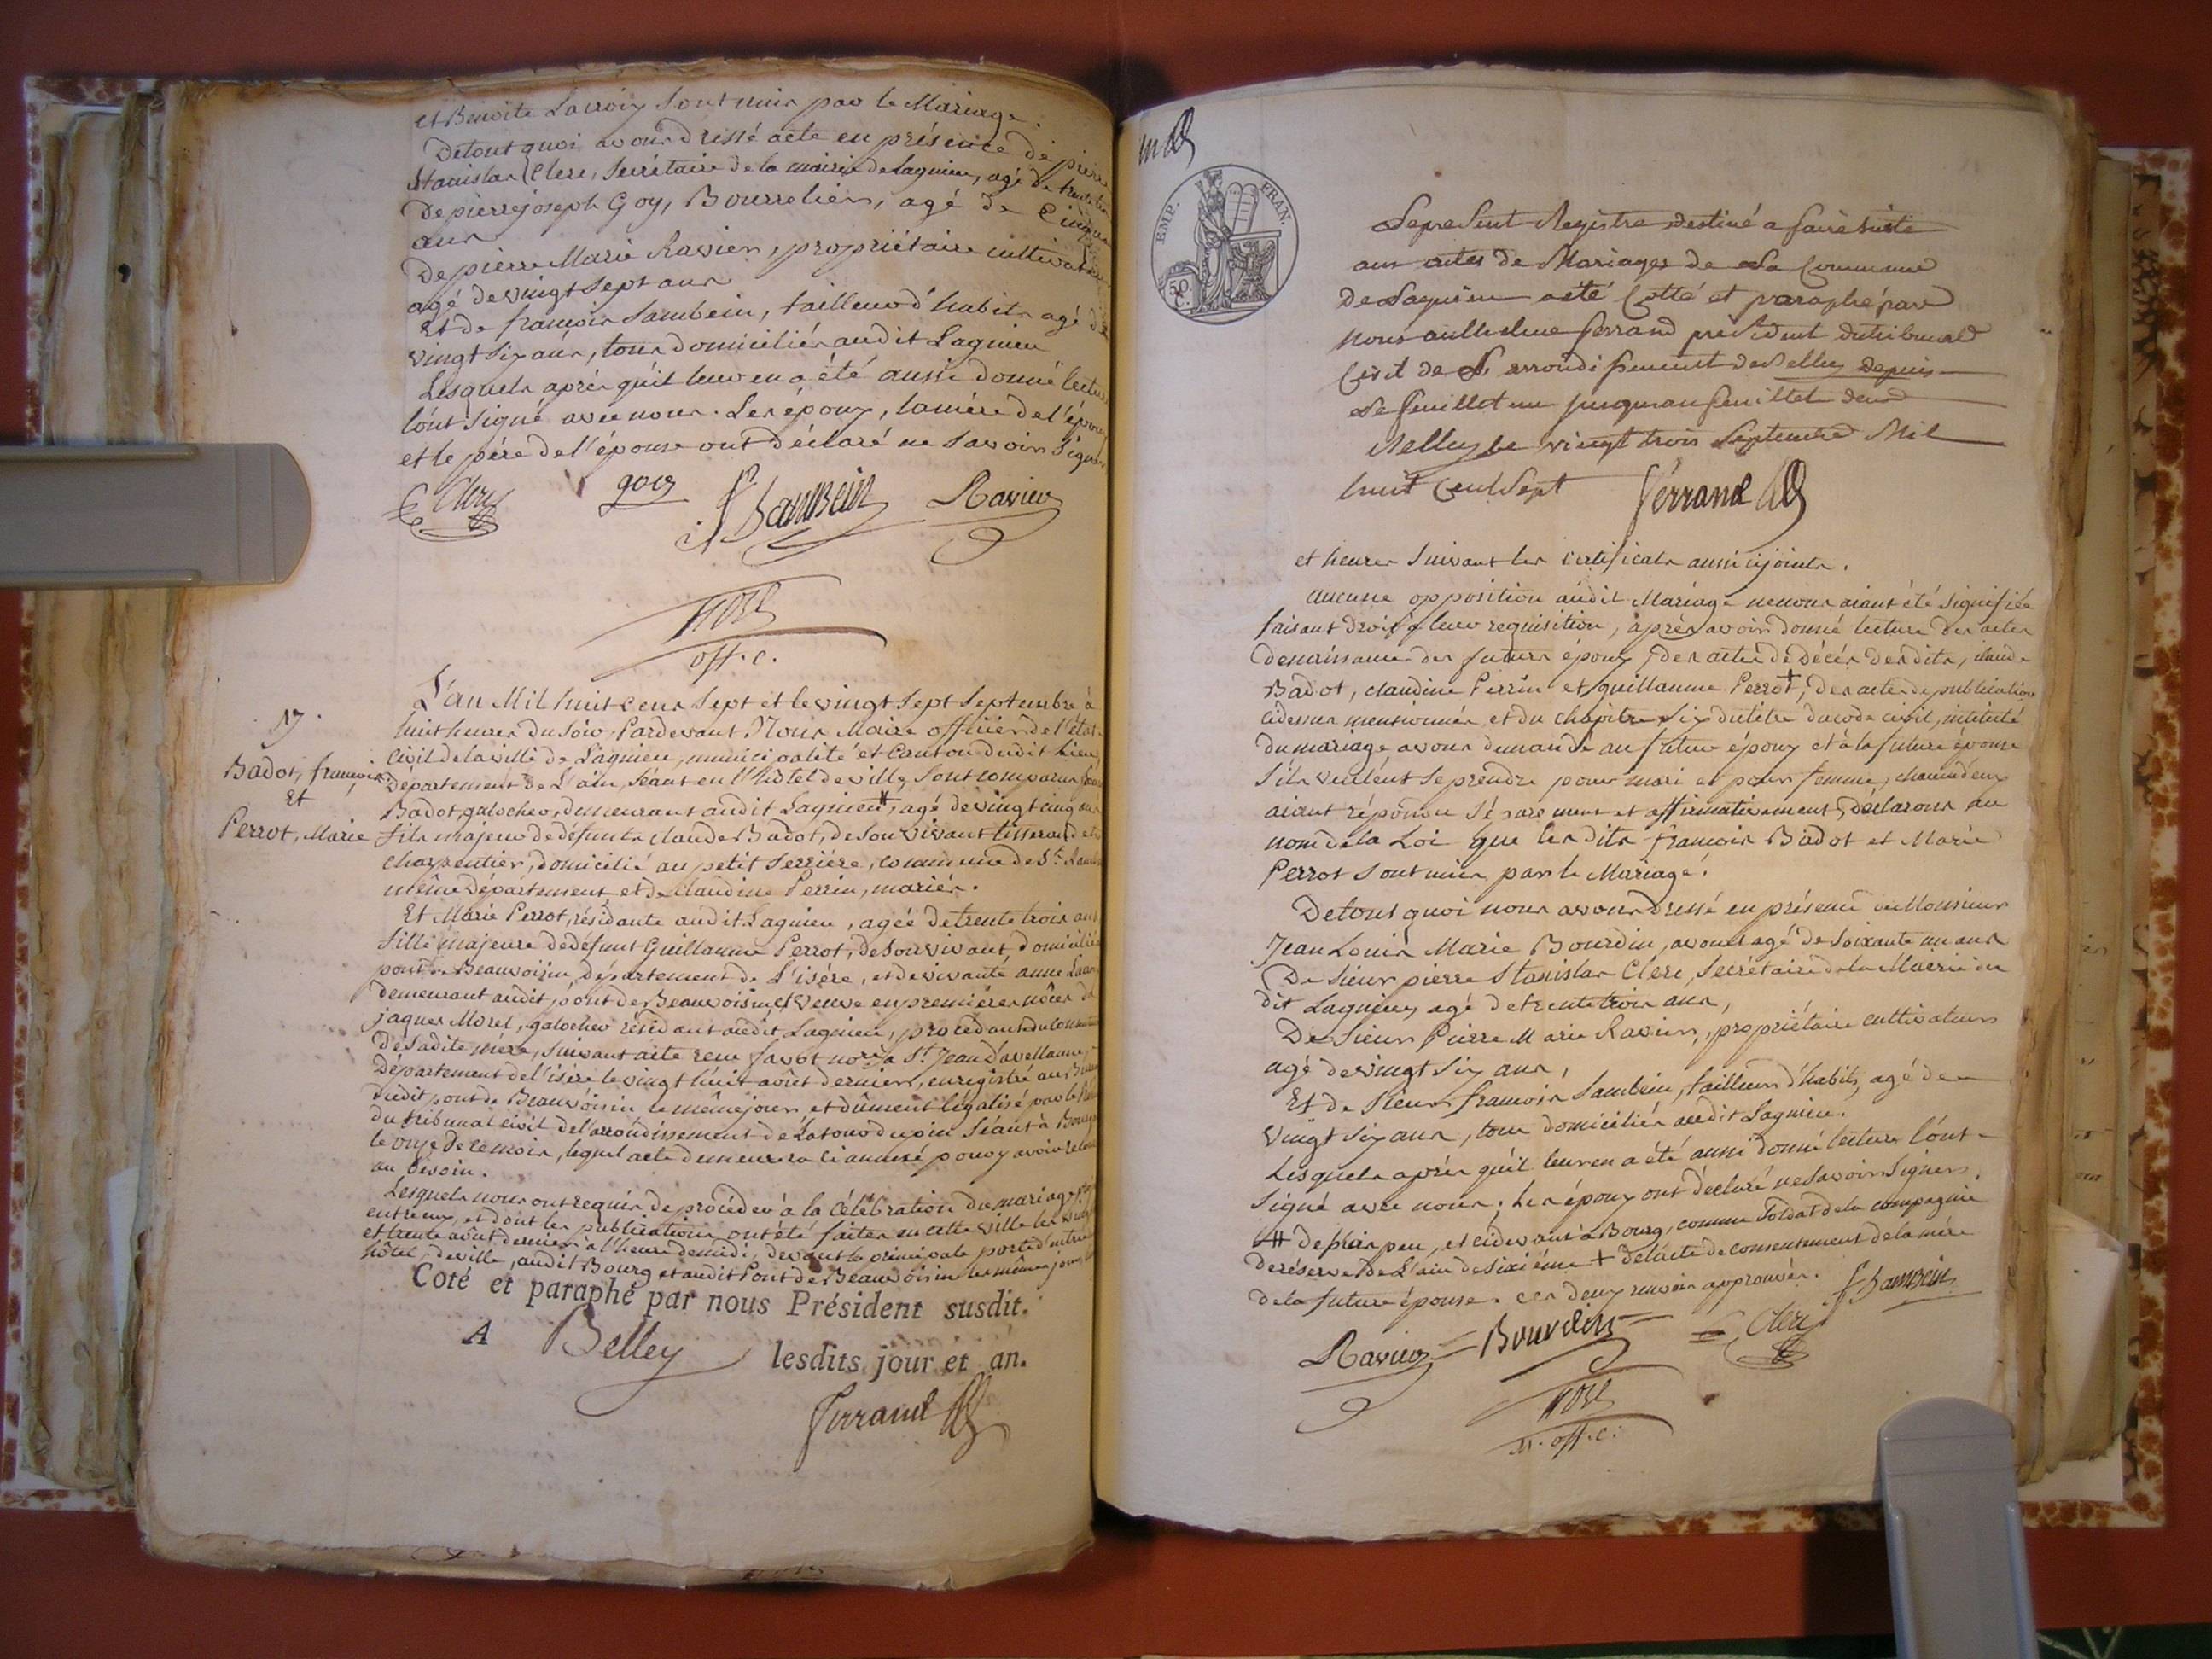 et Benoite Lacroix sont unis par le Mariage.
De tout quoi avons dressé acte en présence de pierre
Stanislas Clerc, Secrétaire de la mairie de Lagnieu, agé de trente trois
De pierre joseph Goy, Bourrelier, agé de
ans
De pierre Marie Ravier, propriétaire cultivateur
agé de vingt sept ans
Et de françois Sambein, tailleur d'habits agé de
vingt six ans, tous domiciliés audit Lagnieu
Lesquels après qu'il leur en a été aussi donné lecture
l'ont signé avec nous. Les époux, la mère de l'époux
et le père de l'épouse ont déclaré ne savoir signer
Clerc goy f Sambein Ravier
off. c.
17.
Badot, françois
Et
Perrot, Marie
L'an Mil huit cens sept et le vingt sept septembre à
huit heures du soir. Pardevant Nous Maire officier de l'état
Civil de la ville de Lagnieu, municipalité et Canton dudit lieu,
Département de L'ain, séant en l'hôtel de ville, sont comparus
Badot, galocher, demeurant audit Lagnieu #, agé de vingt cinq ans
fils majeur de défunts claude Badot, de son vivant tisserand et
charpentier, domicilié au petit Serrière, commune de St.
même Département, et de Claudine Perrin, mariés.
Et Marie Perrot, résidante audit Lagnieu, agée de trente trois ans
fille majeure de défunt Guillaume Perrot, de son vivant, domicilié
pont de Beauvoisin, département de L'isère, et de vivante anne
demeurant audit pont de Beauvoisin, et veuve en premières nôces de
jaques Morel, galocher résidant audit Lagnieu, procédant du consentement
de sa dite mère, suivant acte reçu favot nore. a St. Jean d'avellanne,
Département de l'isère le vingt huit août dernier, enregistré au Bureau
dudit pont de Beauvoisin le même jour, et dûment légalisé par le
du tribunal civil de l'arrondissement de Latour du pin séant à Bourgoin
le onze de ce mois, lequel acte demeurera ci annexé pour y avoir
au besoin.
Lesquels nous ont requis de procéder à la célébration du mariage
entre eux, et dont les publications ont été faites en cette ville les vingt
et trente août dernier à l'heure de midi, devant la principale porte d'entrée
hôtel de ville, audit Bourg et audit Pont de Beauvoisin les mêmes jours
Coté et paraphé par nous Président susdit.
A Belley lesdits jour et an.
Ferrand
EMP. FRAN.
50 C.
Le present Registre destiné a faire suite
aux actes de Mariages de La Commune
de Lagnieu a été Cotté et paraphé par
nous anthelme ferrand president du tribunal
Civil de L'arrondissement de Belley depuis
Le feuillet un jusqu'au feuillet deux
Belley le vingt trois Septembre Mil
huit Cent Sept Ferrand
et heures suivant les certificats aussi ci joints.
Aucune opposition audit Mariage ne nous aiant été signifiée
faisant droit à leur requisition, après avoir donné lecture des actes
de naissance des futurs époux, des actes de Décès des dits, claude
Badot, claudine Perrin et guillaume Perrot +, des actes de publications
cidessus mentionnés, et du chapitre six du titre du code civil, intitulé
du mariage, avons demandé au futur époux et à la future épouse
s'ils veulent se prendre pour mari et pour femme, chacun d'eux
aiant répondu séparement et affirmativement, déclarons au
nom de la Loi que les dits françois Badot et Marie
Perrot sont unis par le Mariage.
De tout quoi nous avons dressé en présence de Monsieur
Jean Louis Marie Bourdin, avoué agé de soixante un ans
De sieur pierre Stanislas Clerc, Secrétaire de la Mairie du
dit Lagnieu, agé de trente trois ans,
De Sieur Pierre Marie Ravier, propriétaire cultivateur
agé de vingt six ans,
Et de Sieur françois Sambein, tailleur d'habits, agé de
vingt six ans, tous domiciliés audit Lagnieu.
Lesquels après qu'il leur en a été aussi donné lecture l'ont
signé avec nous; Les époux ont déclaré ne savoir signer.
# depuis peu, et cidevant à Bourg, comme soldat de la compagnie
de réserve de L'ain de sixième + de l'acte de consentement de la mère
de la future épouse. ces deux renvois approuvés. f Sambein
Ravier Bourdin Clerc
M. off. c.